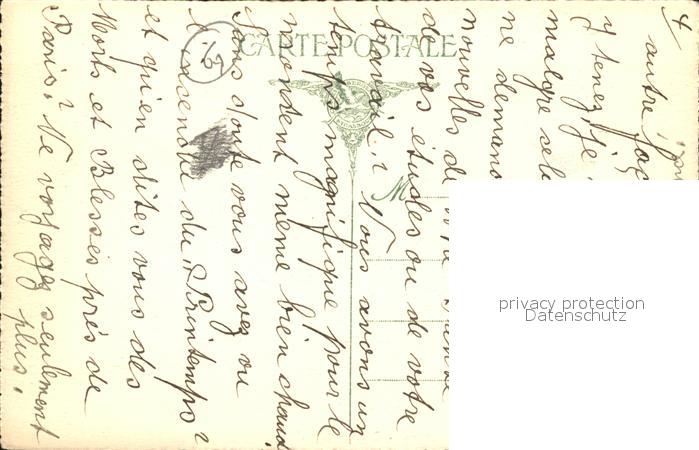 4
autre faç
y tenez, je
malgré cela
ne deman
nouvelles de
de vos études ou de votre
travail ? Vous avons un
temps magnifique pour le
moment même bien chaud
Sans doute vous avez vu
l'incendie du Printemps ?
et qu'en dites vous des
Morts et Blessés près de
Paris ? Ne voyagez seulement
plus !
CARTE POSTALE
M
privacy protection
Datenschutz